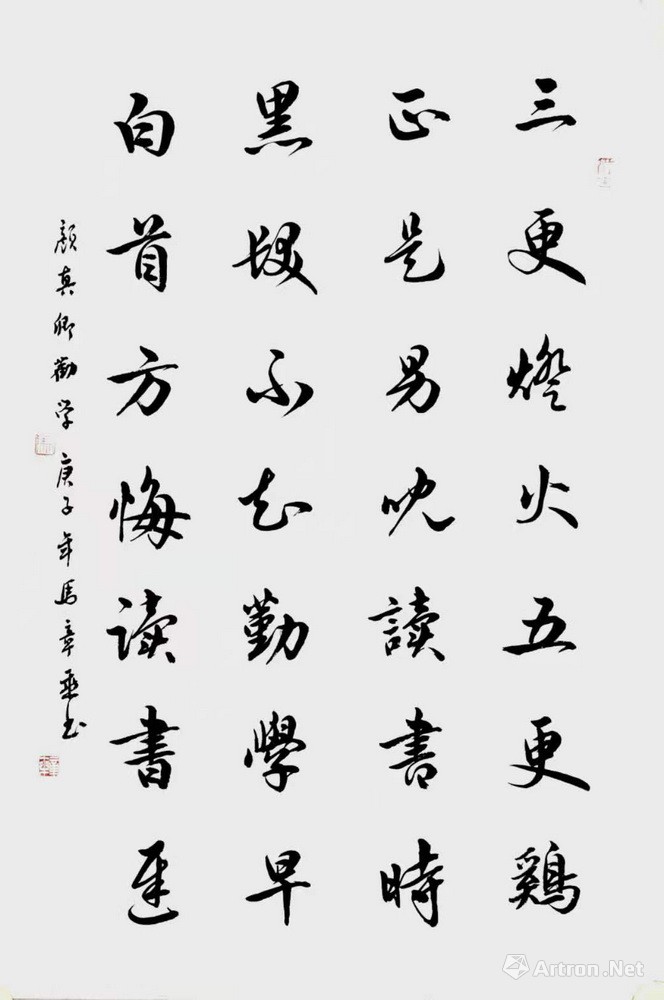 三更燈火五更鷄
正是男兒讀書時
黑髮不知勤學早
白首方悔读書遲
顏真卿勸学 庚子年馬章乘书
Artron.Net